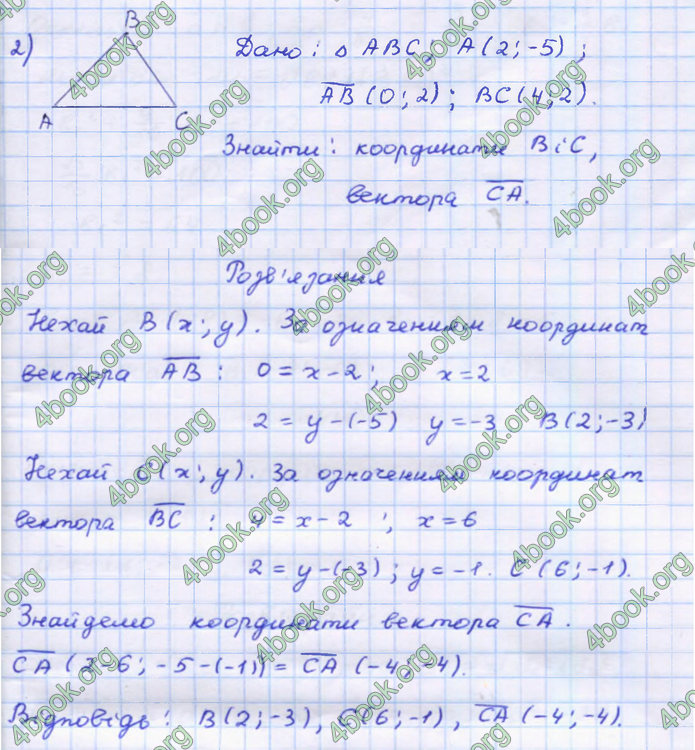 2)
B
A
C
Дано: Δ ABC, A(2;-5);
AB(0;2); BC(4;2).
Знайти: координати B і C,
вектора CA.
Розв'язання
Нехай B(x;y). За означенням координат
вектора AB: 0=x-2; x=2
2=y-(-5) y=-3 B(2;-3)
Нехай C(x;y). За означенням координат
вектора BC: 4=x-2; x=6
2=y-(-3); y=-1. C(6;-1).
Знайдемо координати вектора CA.
CA(2-6;-5-(-1))=CA(-4;-4).
Відповідь: B(2;-3), C(6;-1), CA(-4;-4).
4book.org